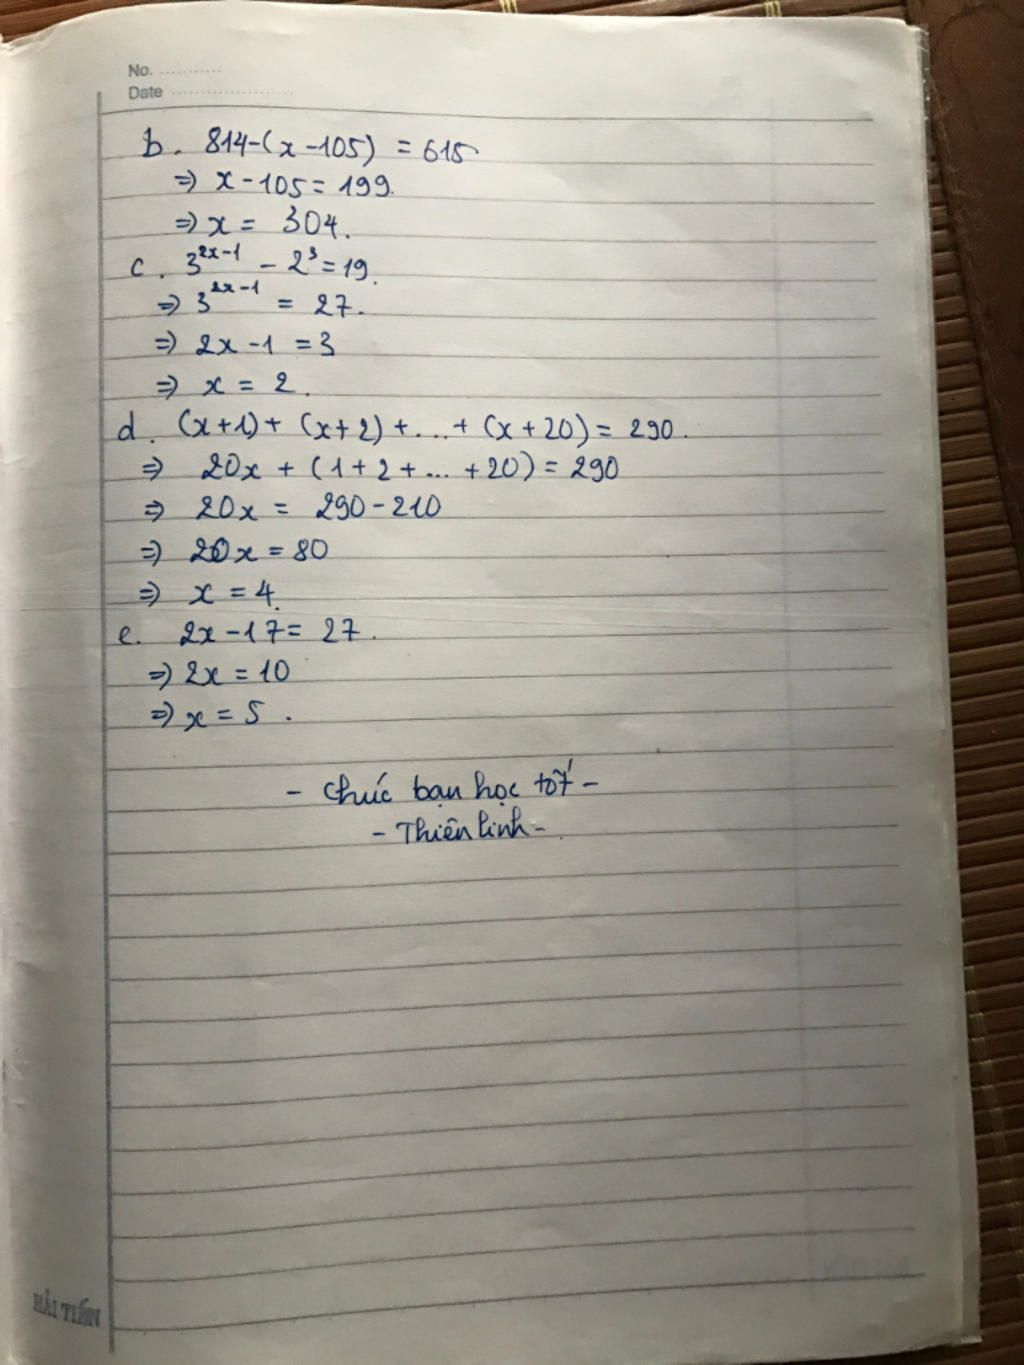 No. ...........
Date .....................
b. 814-(x-105) = 615
=> x-105 = 199.
=> x = 304.
c. 3^{2x-1} - 2^3 = 19.
=> 3^{2x-1} = 27.
=> 2x-1 = 3
=> x = 2.
d. (x+1)+ (x+2) +...+ (x+20) = 290.
=> 20x + (1+2+... +20) = 290
=> 20x = 290-210
=> 20x = 80
=> x = 4.
e. 2x-17= 27.
=> 2x = 10
=> x = 5.
- Chúc bạn học tốt -
- Thiên linh -
HẢI TIẾN